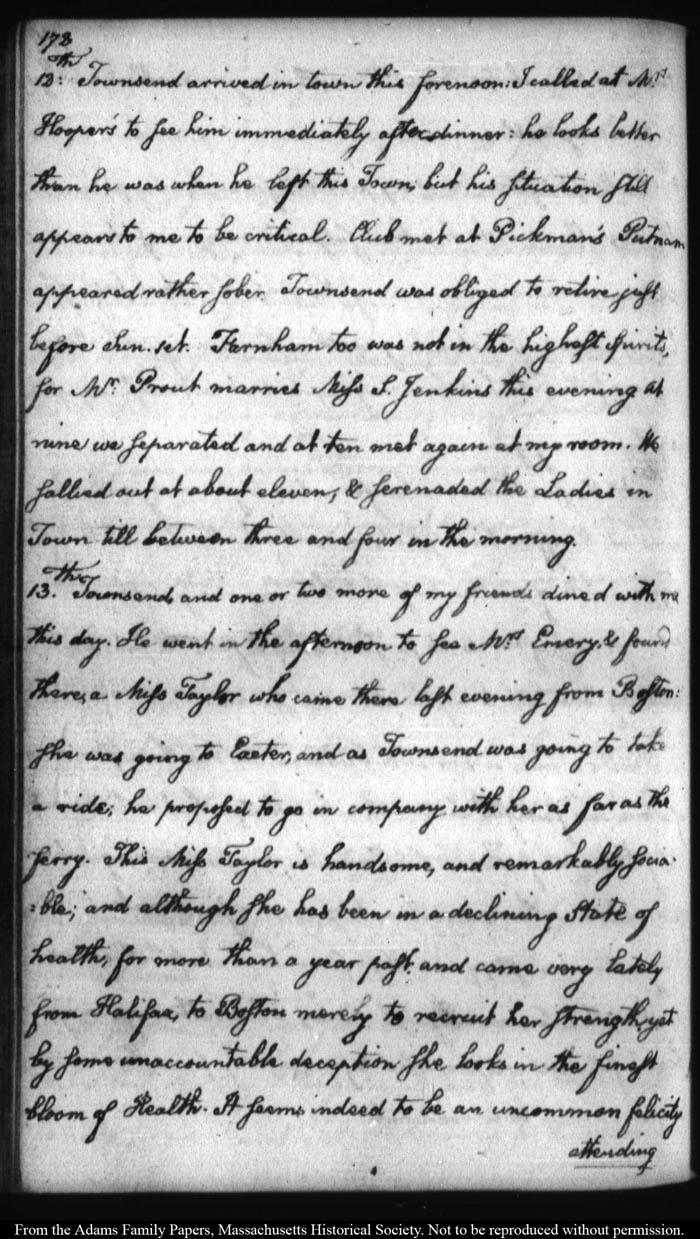 178
12:th Townsend arrived in town this forenoon: I called at Mrs
Hooper's to see him immediately after dinner: he looks better
than he was when he left this Town; but his situation still
appears to me to be critical. Club met at Pickman's Putnam
appeared rather sober. Townsend was obliged to retire just
before Sun-set. Farnham too was not in the highest spirits,
for Mr. Prout marries Miss S. Jenkins this evening at
nine we separated and at ten met again at my room. We
sallied out at about eleven, & serenaded the Ladies in
Town till between three and four in the morning.
13.th Townsend, and one or two more of my friends dined with me
this day. He went in the afternoon to see Mrs Emery, & found
there, a Miss Taylor who came there last evening from Boston:
she was going to Exeter, and as Townsend was going to take
a ride; he proposed to go in company with her as far as the
ferry. This Miss Taylor is handsome, and remarkably socia-
:ble; and although she has been in a declining State of
health, for more than a year past, and came very lately
from Halifax, to Boston merely to recruit her strength, yet
by some unaccountable deception she looks in the finest
bloom of Health. It seems indeed to be an uncommon felicity
attending
From the Adams Family Papers, Massachusetts Historical Society. Not to be reproduced without permission.